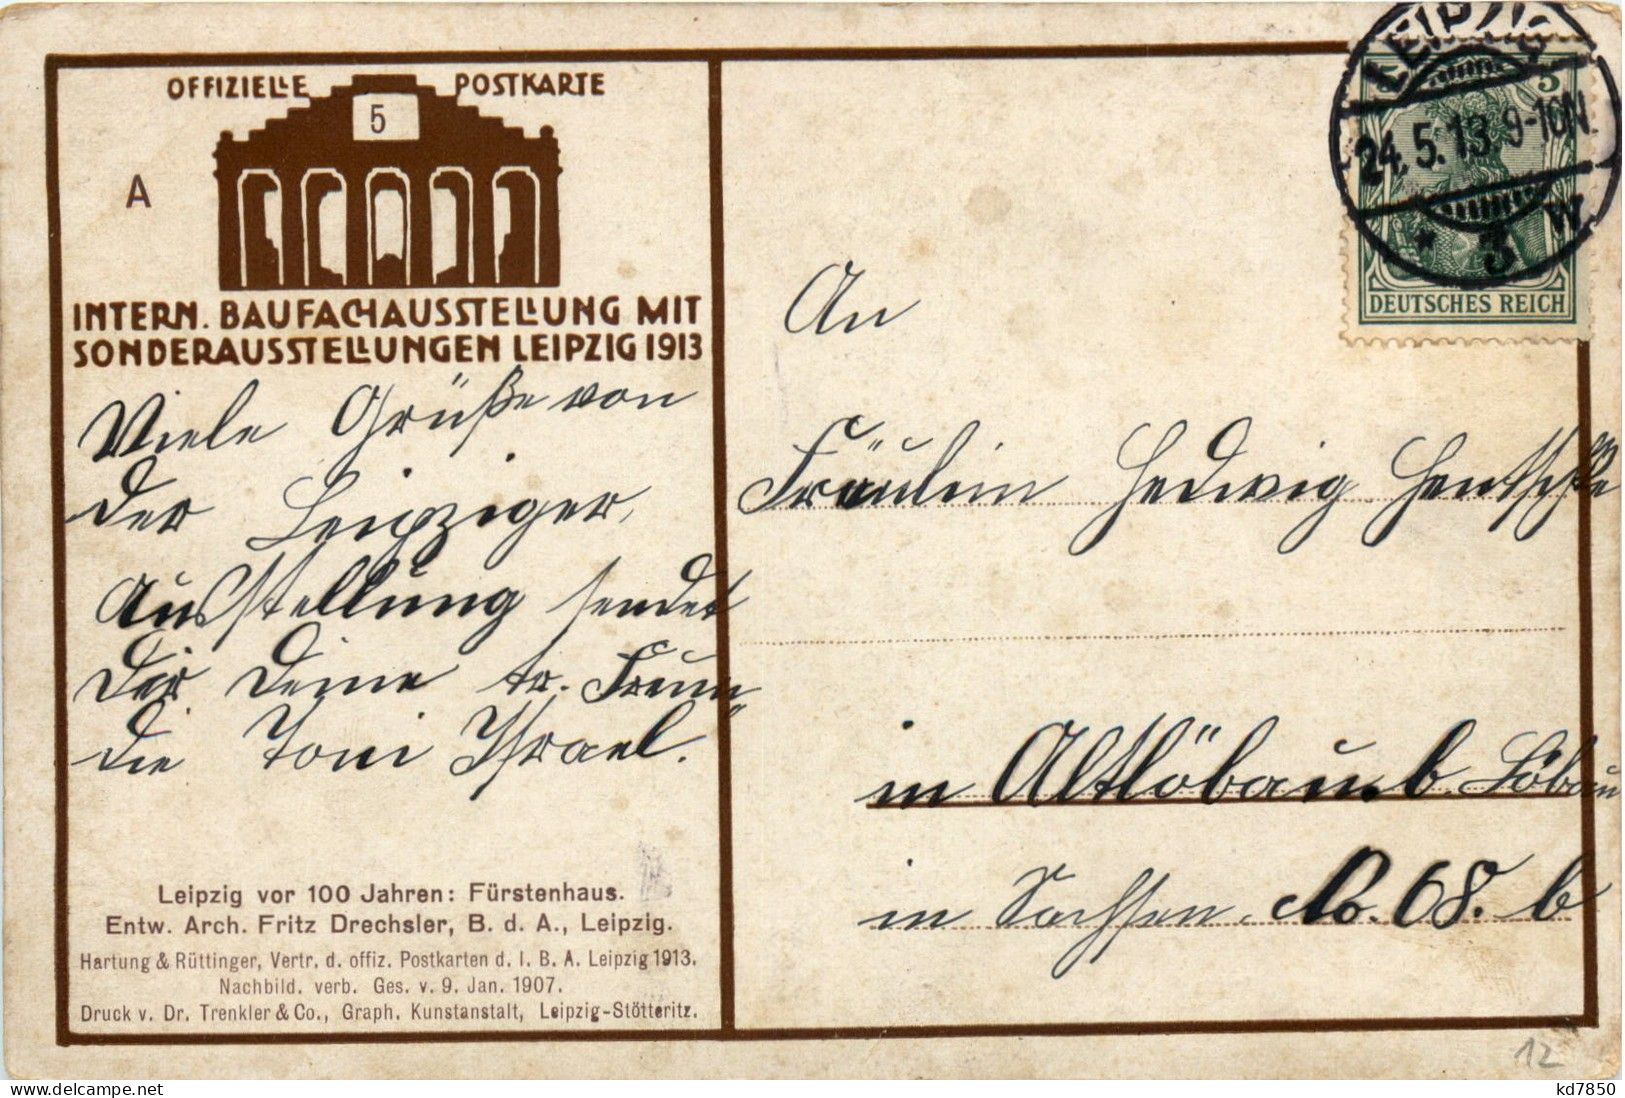 OFFIZIELLE POSTKARTE
5
A
INTERN. BAUFACHAUSSTELLUNG MIT
SONDERAUSSTELLUNGEN LEIPZIG 1913
Viele Grüße von
der Leipziger
Ausstellung sendet
Dir Deine tr. Freun„
die Toni Israel.
Leipzig vor 100 Jahren: Fürstenhaus.
Entw. Arch. Fritz Drechsler, B. d. A., Leipzig.
Hartung & Rüttinger, Vertr. d. offiz. Postkarten d. I. B. A. Leipzig 1913.
Nachbild. verb. Ges. v. 9. Jan. 1907.
Druck v. Dr. Trenkler & Co., Graph. Kunstanstalt, Leipzig-Stötteritz.
LEIPZIG
24.5.13.9-10N.
* 3 W
5 5
DEUTSCHES REICH
An
Fräulein Hedwig Hentschke
in Altlöbau b. Löbau
in Sachsen. No. 68. b
12
kd7850